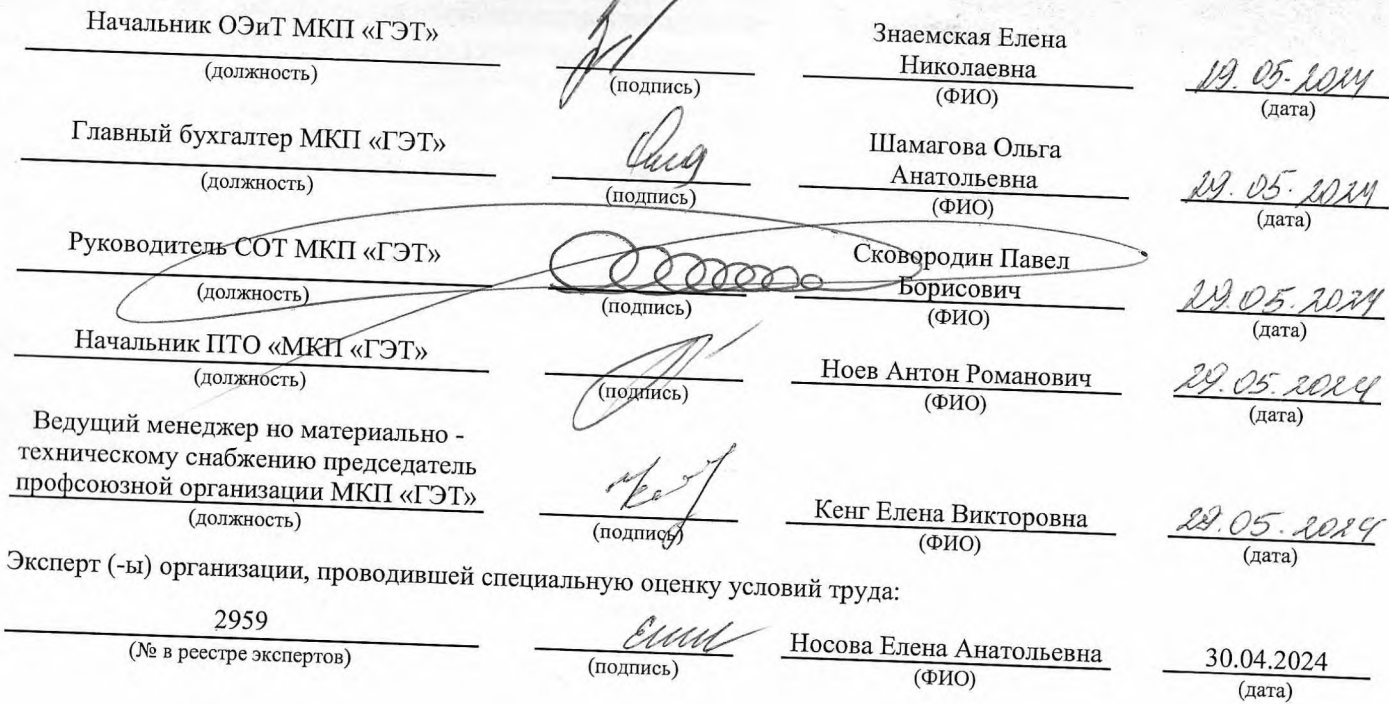 Начальник ОЭиТ МКП «ГЭТ»
(должность)
(подпись)
Знаемская Елена
Николаевна
(ФИО)
29.05.2024
(дата)
Главный бухгалтер МКП «ГЭТ»
(должность)
(подпись)
Шамагова Ольга
Анатольевна
(ФИО)
29.05.2024
(дата)
Руководитель СОТ МКП «ГЭТ»
(должность)
(подпись)
Сковородин Павел
Борисович
(ФИО)
29.05.2024
(дата)
Начальник ПТО «МКП «ГЭТ»
(должность)
(подпись)
Ноев Антон Романович
(ФИО)
29.05.2024
(дата)
Ведущий менеджер но материально -
техническому снабжению председатель
профсоюзной организации МКП «ГЭТ»
(должность)
(подпись)
Кенг Елена Викторовна
(ФИО)
29.05.2024
(дата)
Эксперт (-ы) организации, проводившей специальную оценку условий труда:
2959
(№ в реестре экспертов)
(подпись)
Носова Елена Анатольевна
(ФИО)
30.04.2024
(дата)